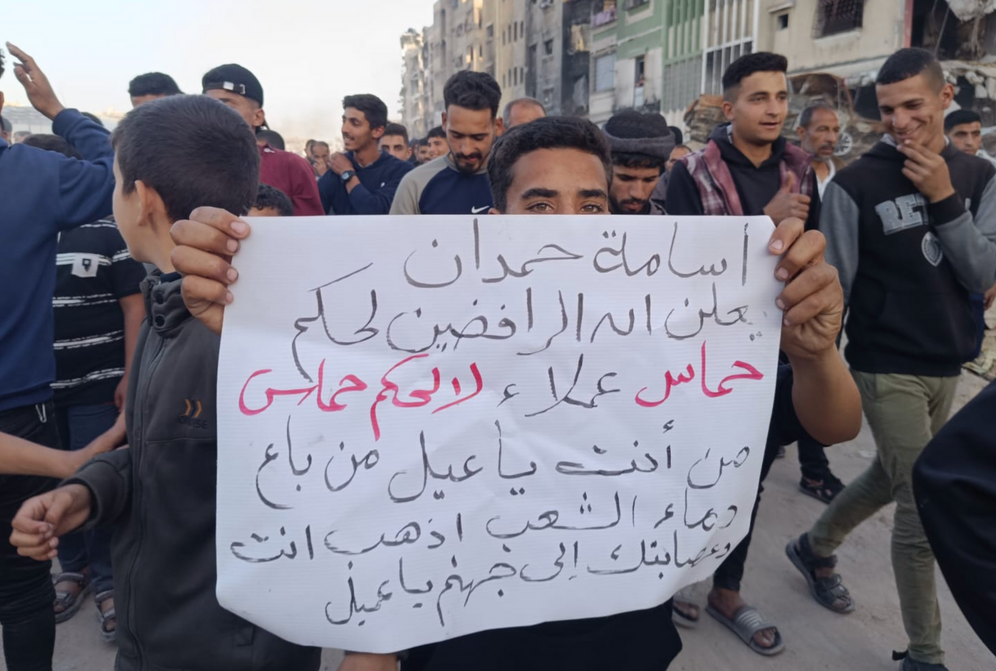 أسامة حمدان
يعلن ان الرافضين لحكم
حماس عملاء لا لحكم حماس
من أنت يا عميل من باع
دماء الشعب اذهب انت
وعصابتك إلى جهنم يا عميل